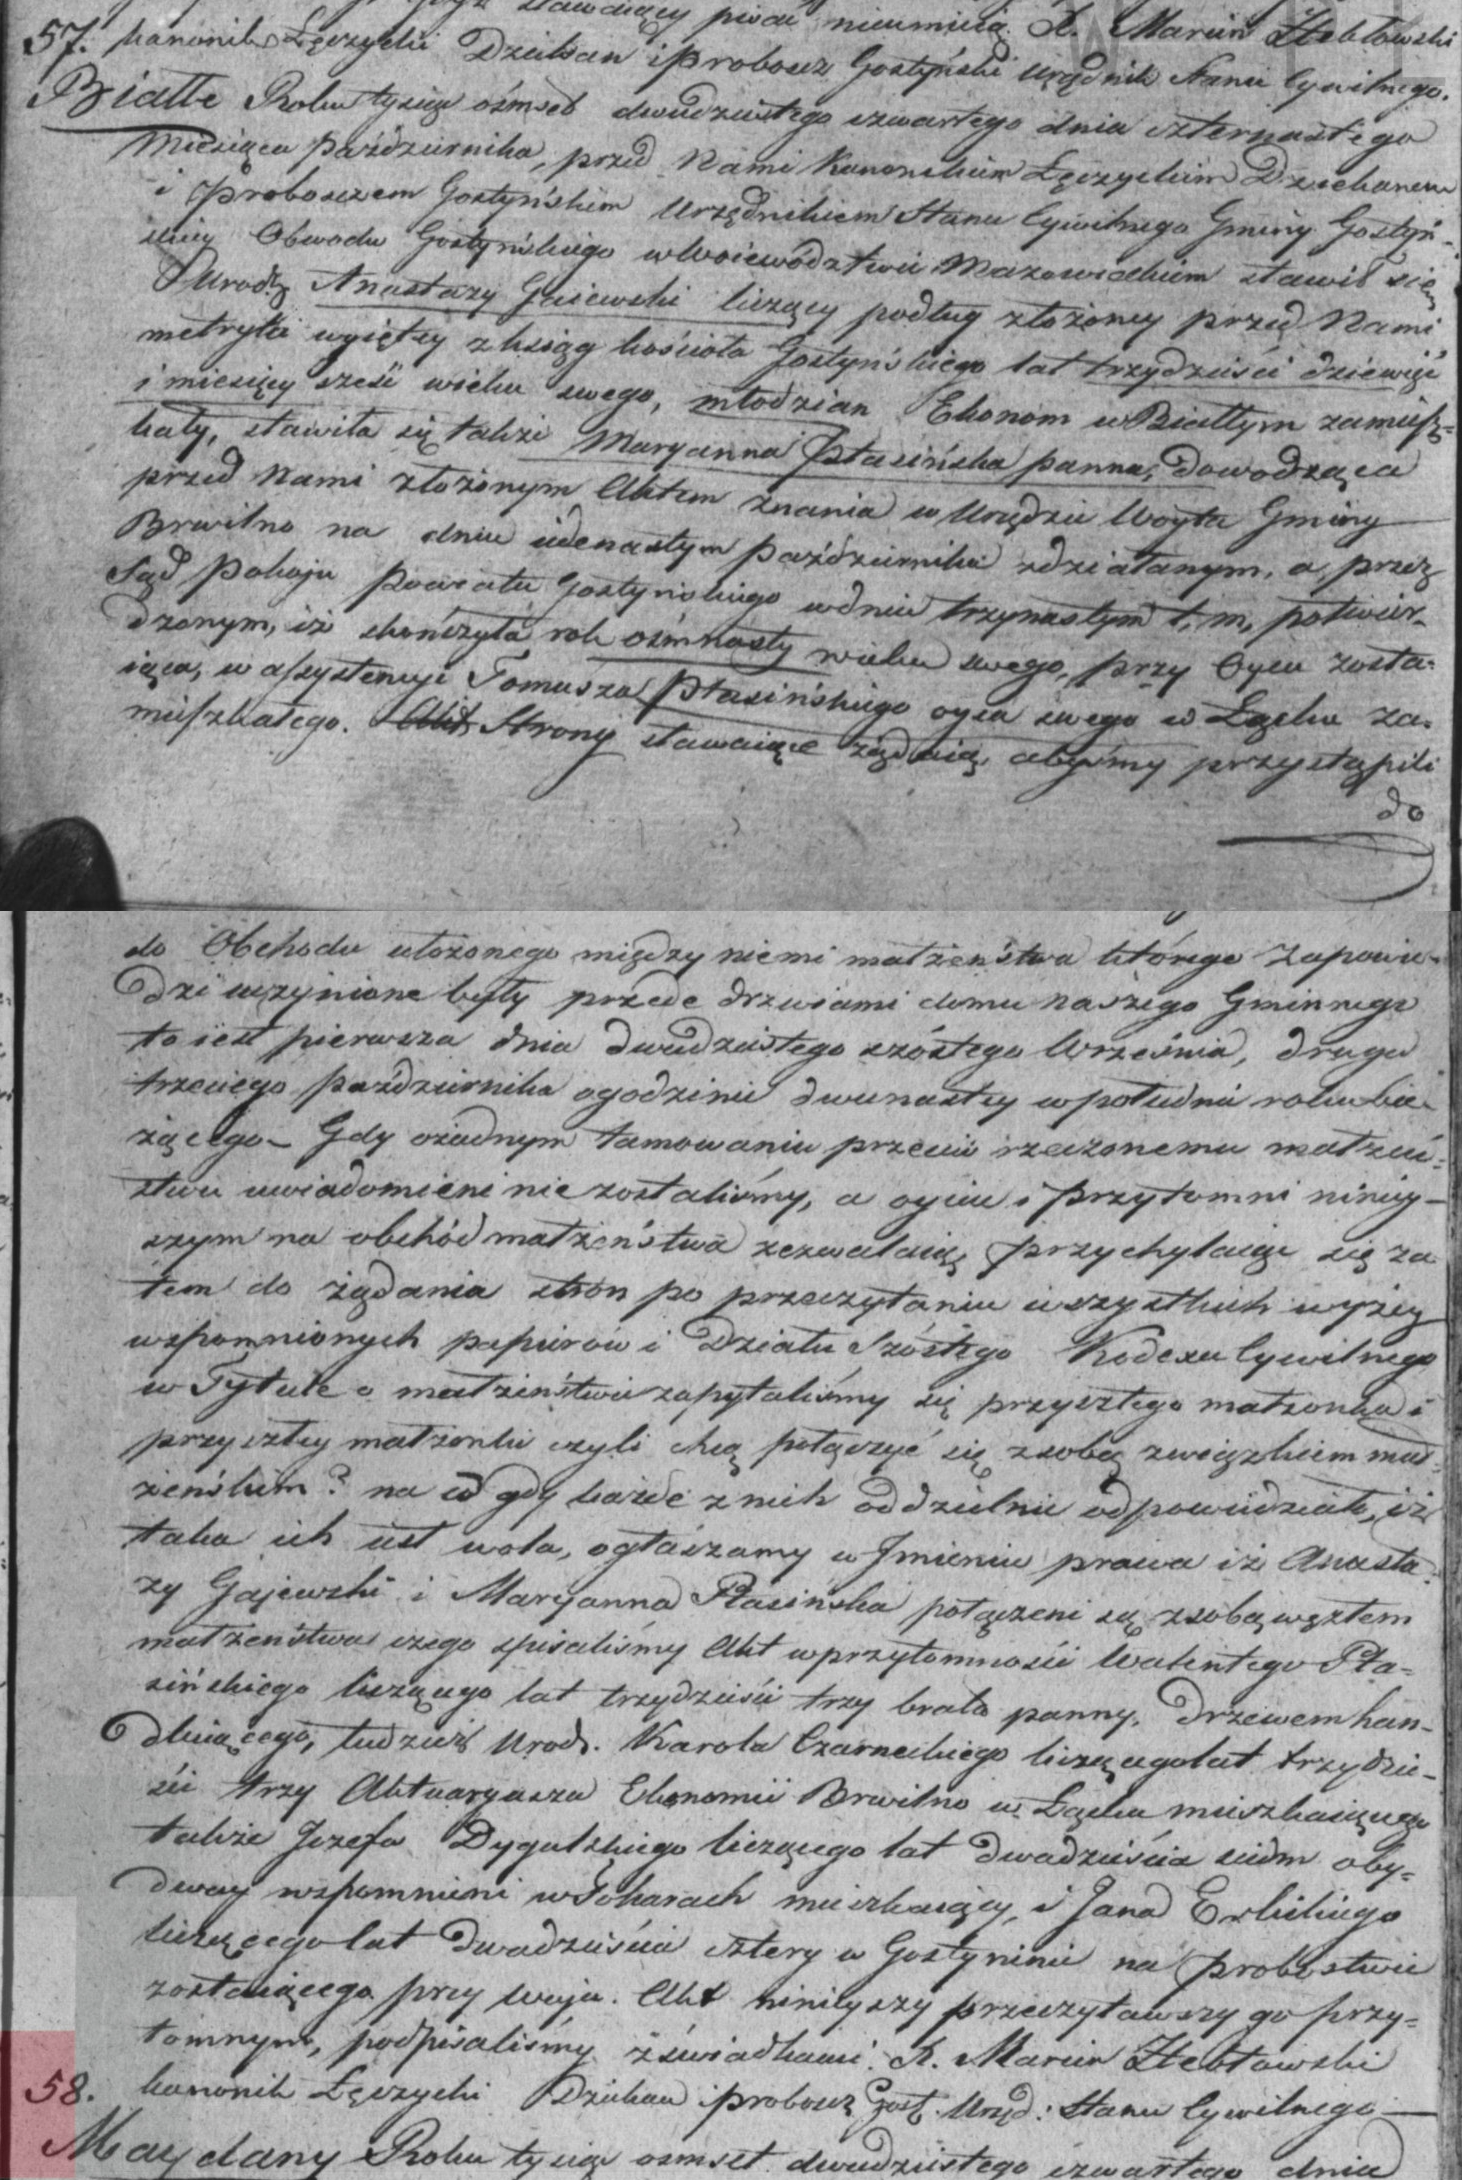 stawaiący pisać nieumieią X. Marcin Zlebłowski
57. kanonik Łęczycki Dziekan i Proboszcz Gostyński Urzędnik Stanu Cywilnego.
Białłe Roku tysiąc ośmset dwudziestego czwartego dnia czternastego
Miesiąca Października, przed Nami Kanonikiem Łęczyckim Dziekanem
i Proboszczem Gostyńskim Urzędnikiem Stanu Cywilnego Gminy Gostyń-
skiey Obwodu Gostyńskiego w Woiewództwie Mazowieckiem stawił się
Urodz. Anastazy Gaiewski liczący podług złożoney przed Nami
metryki wyiętey z ksiąg kościoła Gostyńskiego lat trzydzieści dziewięć
i miesięcy sześć wieku swego, młodzian Ekonom w Białłym zamiesz-
kały, stawiła się także Maryanna Płasińska panna, dowodząca
przed Nami złożonym Aktem znania w Urzędzie Woyta Gminy
Brwilno na dniu iedenastym Października zdziałanym, a przez
Sąd Pokoju Powiatu Gostyńskiego w dniu trzynastym t. m. potwier-
dzonym, iż skończyła rok ośmnasty wieku swego, przy Oycu zosta-
iąca, w assystencyi Tomasza Płasińskiego oyca swego w Łącku za-
mieszkałego. Akt Strony stawaiące żądaią, abyśmy przystąpili
do
do Obchodu ułożonego między niemi małżeństwa którego Zapowie-
dzi uczynione były przede drzwiami domu naszego Gminnego
to iest pierwsza dnia dwudziestego szóstego Września, druga
trzeciego Października o godzinie dwunastey w południe roku bie-
żącego - Gdy o żadnym tamowaniu przeciw rzeczonemu małżeń-
stwu uwiadomieni nie zostaliśmy, a oyciec i przytomni niniey-
szym na obchód małżeństwa zezwalaią, przychylaiąc się za
tem do żądania stron po przeczytaniu wszystkich wyżey
wspomnionych papierów i Działu Szóstego Kodexu Cywilnego
w Tytule o małżeństwie zapytaliśmy się przyszłego małżonka i
przyszłey małżonki czyli chcą połączyć się z sobą związkiem mał-
żeńskim? na co gdy każde z nich oddzielnie odpowiedziało, iż
taka ich iest wola, ogłaszamy w Jmieniu prawa iż Anasta-
zy Gajewski i Maryanna Płasińska połączeni są z sobą węzłem
małżeństwa czego spisaliśmy Akt w przytomności Walentego Pła-
sińskiego liczącego lat trzydzieści trzy brata panny, drzewem han-
dluiącego, tudzież Urodz. Karola Czarneckiego liczącego lat trzydzie-
ści trzy Aktuaryusza Ekonomii Brwilno w Łącku mieszkaiącego
także Jozefa Dygulskiego liczącego lat dwadzieścia siedm oby-
dway wspomnieni w Sokarach mieszkaiący, i Jana Erlickiego
liczącego lat dwadzieścia cztery w Gostyninie na probostwie
zostaiącego przy wuju. Akt ninieyszy przeczytawszy go przy-
tomnym, podpisaliśmy z świadkami. X. Marcin Zlebłowski
58. kanonik Łęczycki Dziekan i proboszcz Gost. Urzęd: Stanu Cywilnego
Maydany Roku tysiąc ośmset dwudziestego czwartego dnia